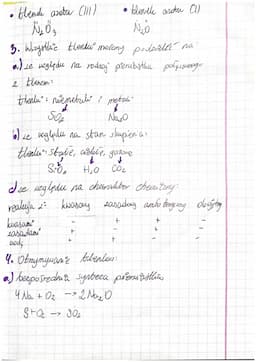 • tlenek azotu (III) • tlenek azotu (I)
N₂O₃ N₂O
3. Wszystkie tlenki możemy podzielić na
a) ze względu na rodzaj pierwiastka połączonego
z tlenem:
tlenki: niemetali i metali
SO₂ Na₂O
b) ze względu na stan skupienia:
tlenki: stałe, ciekłe, gazowe
SiO₂ H₂O CO₂
c) ze względu na charakter chemiczny:
reakcja z: kwasowy zasadowy amfoteryczny obojętny
kwasami - + + -
zasadami + - + -
wodą + + - -
4. Otrzymywanie tlenków:
a) bezpośrednia synteza pierwiastków
4Na + O₂ → 2Na₂O
S + O₂ → SO₂